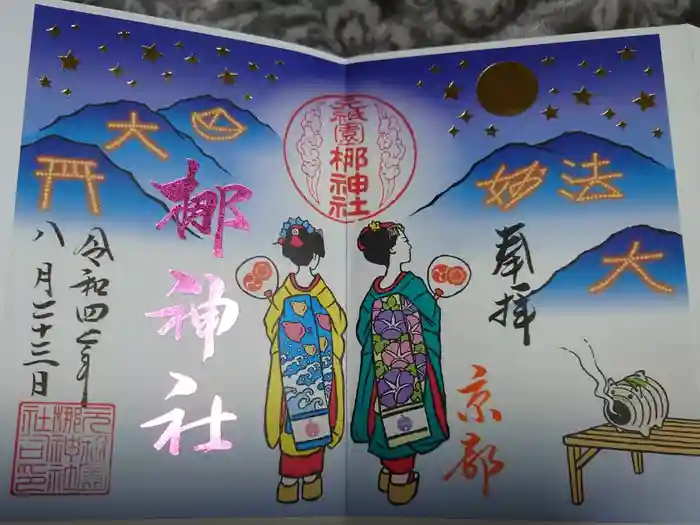 奉拝
京都
妙
法
大
元祇園
梛神社
大
梛神社
令和四年
八月二十三日
元祇園
梛神社
之印